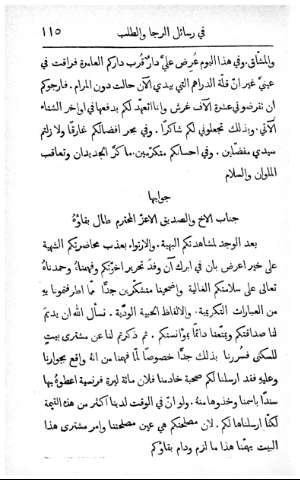 في رسائل الرجا والطلب ١١٥
والمشاق. وفي هذا اليوم عُرض عليَّ دارٌ قُرب داركم العامرة فراقت في
عينيَّ غير ان قلَّة الدراهم التي بيدي الآن حالت دون المرام. فارجوكم
ان تقرضوني عشرة آلاف غرش وانا اتعهَّد لكم بدفعها في اواخر الشتاء
الآتي. وبذلك تجعلوني لكم شاكرًا. وفي بحر افضالكم غارقًا ولا زلتم
سيدي مفضّلين. وفي احسانكم متكرّمين. ما كرَّ الجديدان وتعاقب
الملوان والسلام
جوابها
جناب الاخ والصديق الاعزّ المحترم طال بقاؤهُ
بعد الوجد لمشاهدتكم البهية. والارتواء بعذب محاضرتكم الشهية
على خير اعرض بان في ابرك آن وفد تحرير اخوَّتكم وفهمناهُ وحمدناهُ
تعالى على سلامتكم الغالية واضحينا متشكّرين جدًّا ممَّا اطرفتمونا بهِ
من العبارات التكريمية. والالفاظ الحبّية الودّية. نسأل الله ان يديم
لنا صداقتكم ويمتّعنا دائمًا بموانستكم. ثم ذكرتم لنا عن مشترى بيتٍ
للسكنى فسُررنا بذلك جدًّا خصوصًا لمَّا فهمنا من انهُ واقع بجوارنا
وعليهِ فقد ارسلنا لكم صحبة خادمنا فلان مائة ليرة فرنسية اعطوهُ بها
سندًا باسمنا وخذوها منهُ. ولو انّ في الوقت لدينا اكثر من هذه القيمة
لكنَّا ارسلناها لكم. لان مصلحتكم هي عين مصلحتنا وامر مشترى هذا
البيت يهمُّنا هذا ما لزم ودام بقاؤكم